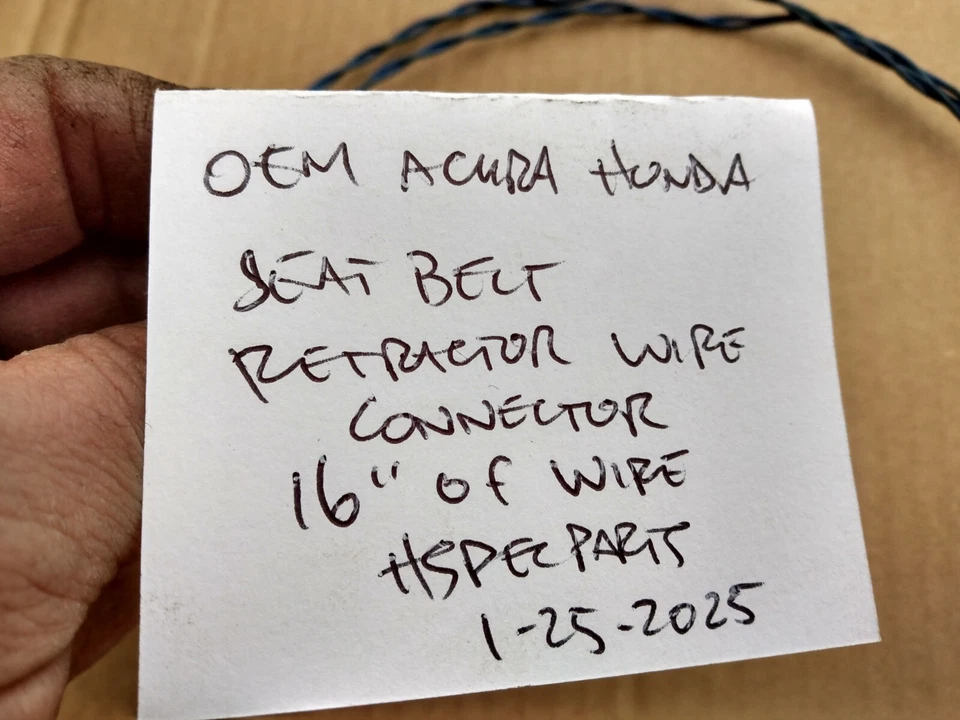 OEM ACURA HONDA
SEAT BELT
RETRACTOR WIRE
CONNECTOR
16" OF WIRE
HSPECPARTS
1-25-2025